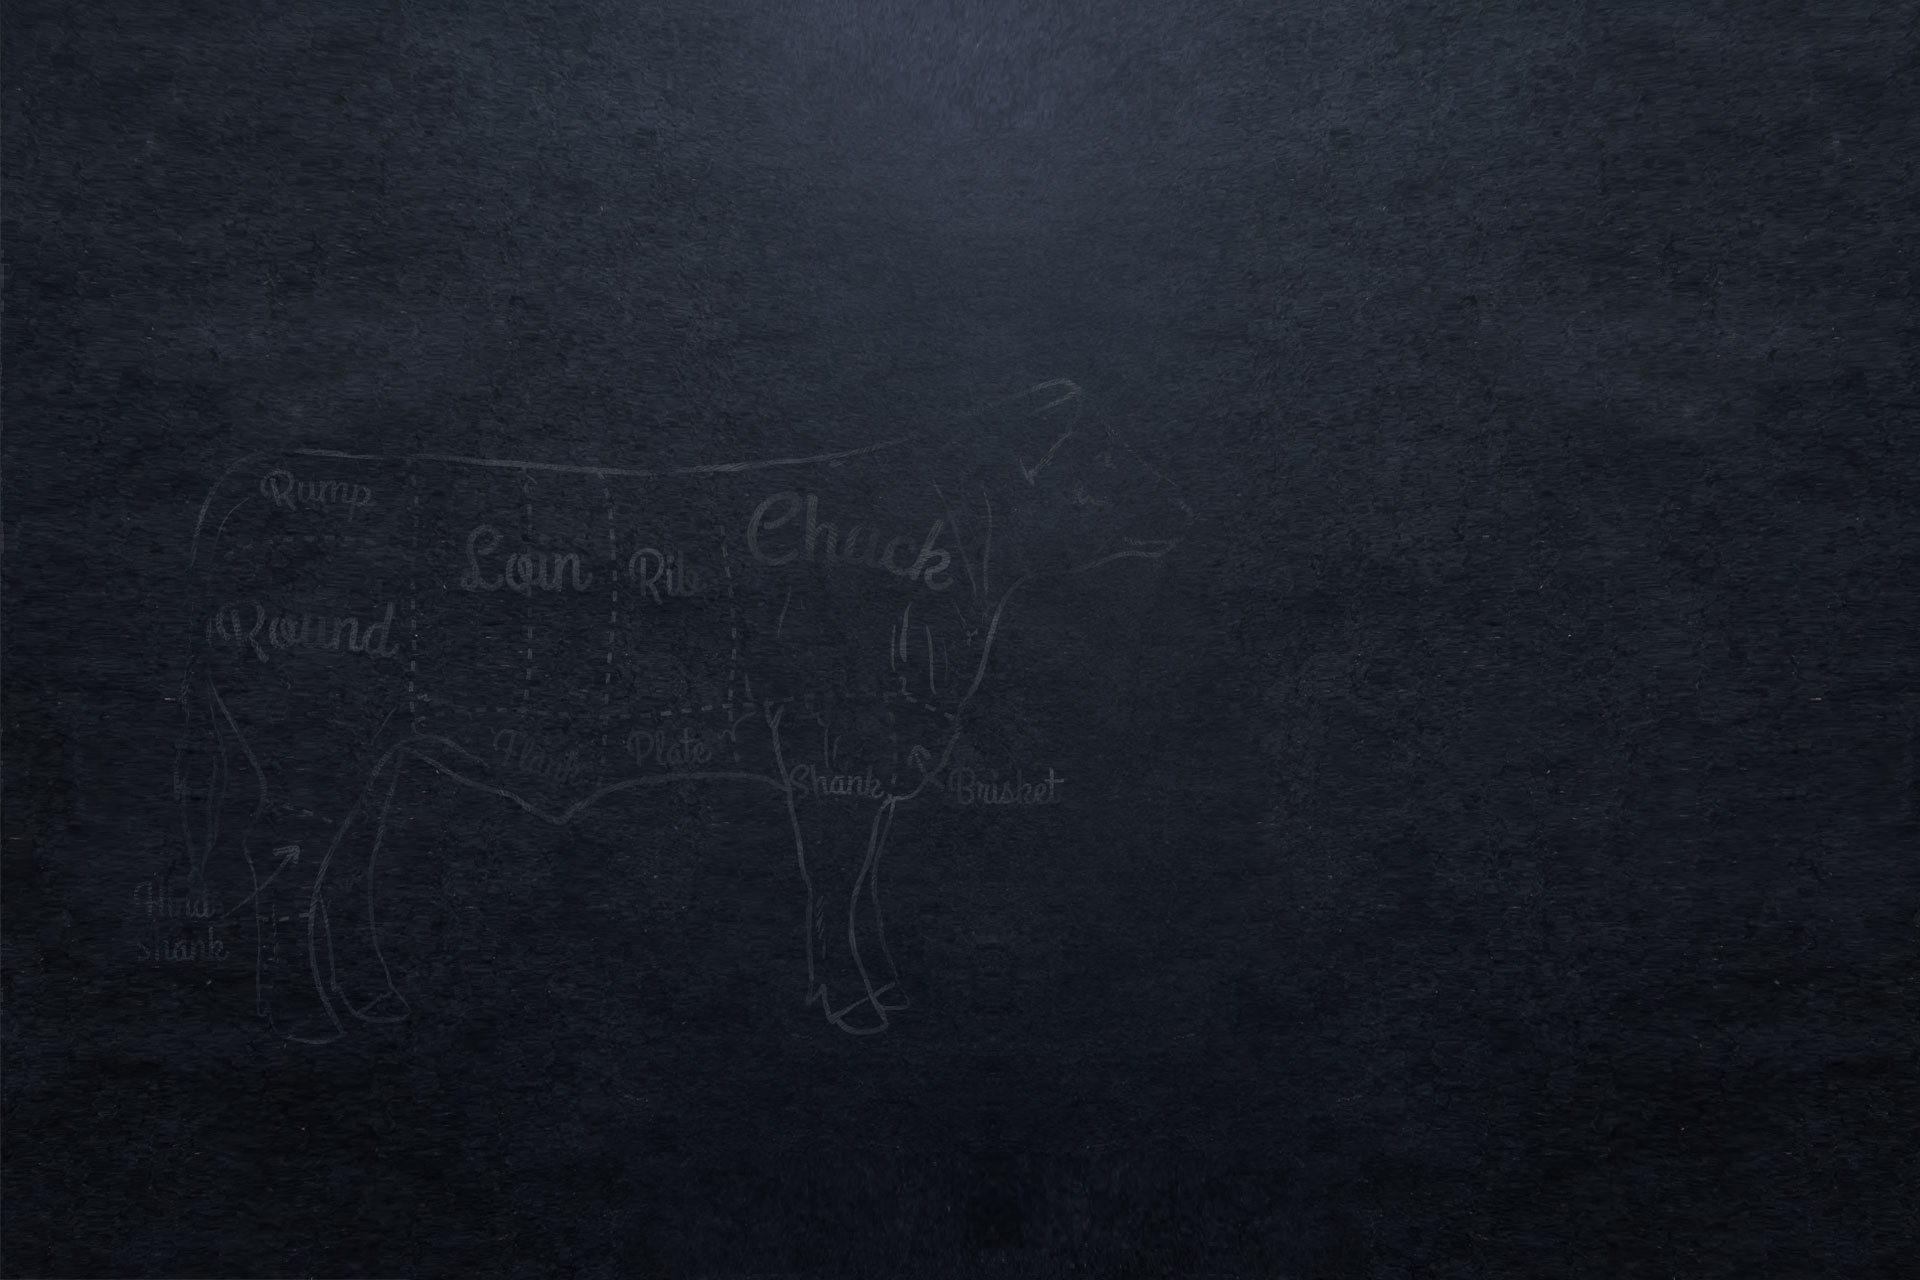 Rump
Loin
Rib
Chuck
Round
Flank
Plate
Shank
Brisket
Hind
Shank